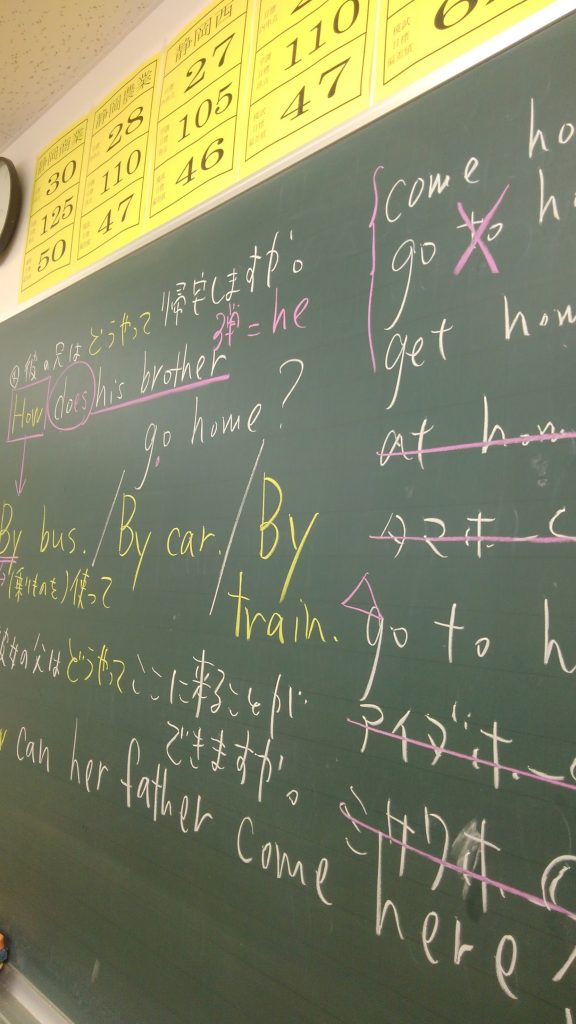 静岡商業
30
125
50
静岡農業
28
110
47
静岡西
27
105
46
110
47
④彼の兄はどうやって帰宅しますか。
How does his brother
弾=he
go home?
By bus. / By car. / By train.
(乗りものを)使って
彼女の父はどうやってここに来ることが
できますか。
can her father come here?
come ho
go to h
get hom
at hom
タマホー
go to h
アイプホー
ミサワホ